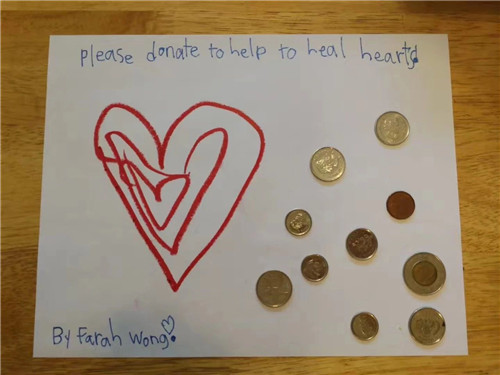 please donate to help to heal hearts
By Farah Wong